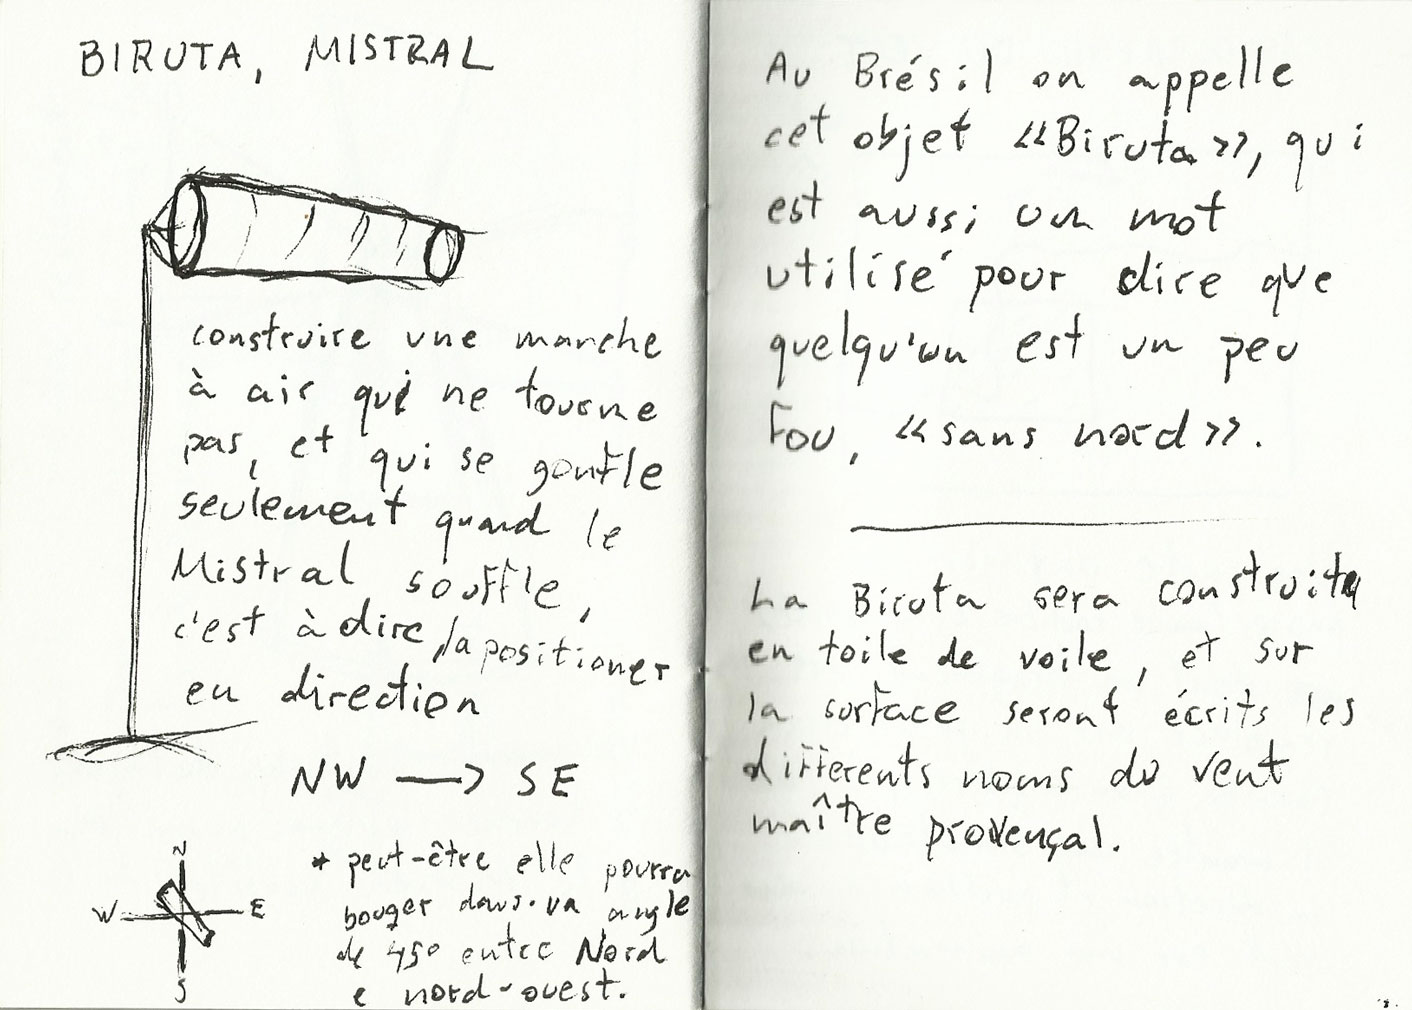 BIRUTA, MISTRAL
construire une manche
à air qui ne tourne
pas, et qui se gonfle
seulement quand le
Mistral souffle,
c'est à dire, la positioner
en direction
NW → SE
N
W E
S
* peut-être elle pourra
bouger dans un angle
de 45° entre Nord
e nord-ouest.
Au Brésil on appelle
cet objet «Biruta», qui
est aussi un mot
utilisé pour dire que
quelqu'un est un peu
fou, «sans nord».
La Biruta sera construite
en toile de voile, et sur
la surface seront écrits les
differents noms du vent
maître provençal.